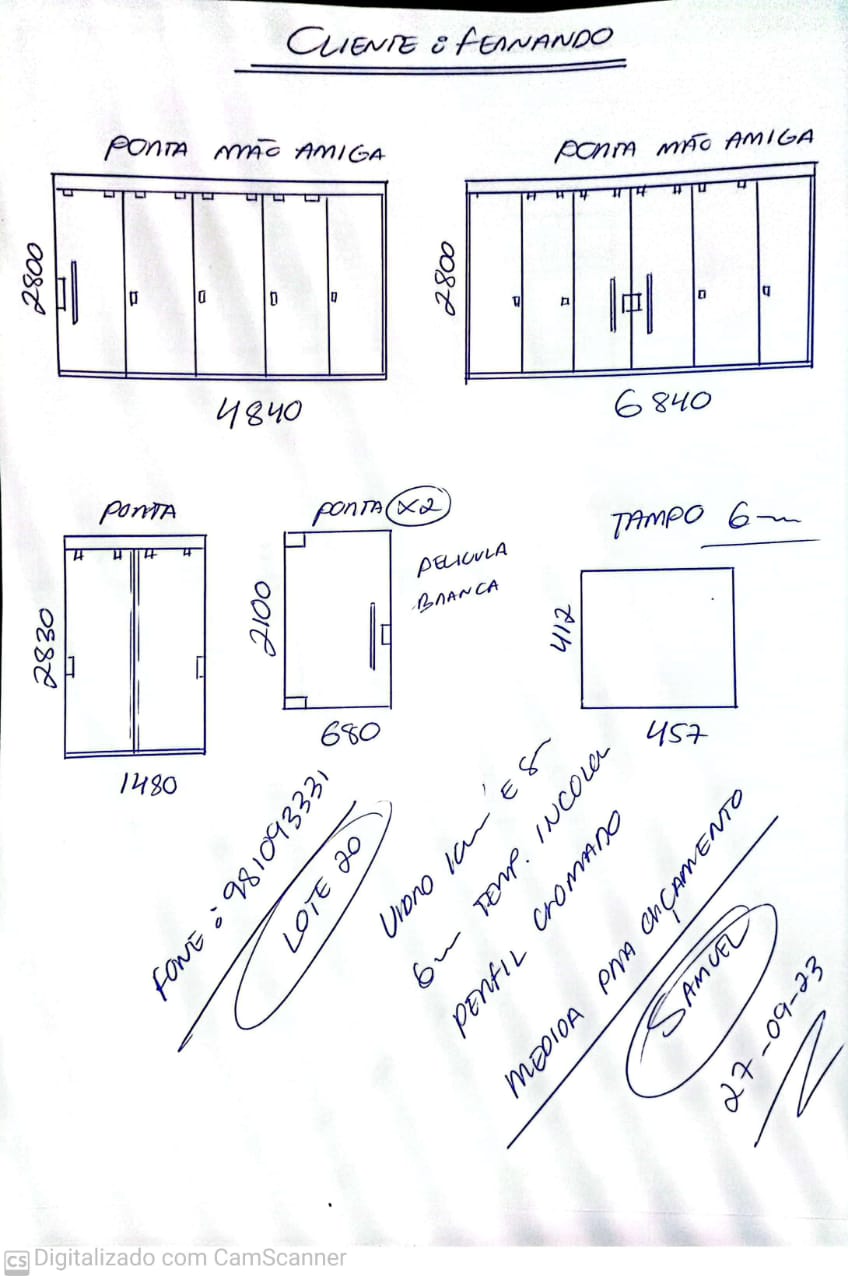 CLIENTE: FERNANDO
PORTA MÃO AMIGA
2800
4840
PORTA MÃO AMIGA
2800
6840
PORTA
2830
1480
PORTA X2
2100
680
PELICULA
BRANCA
TAMPO 6mm
412
457
FONE: 981093331
LOTE 20
VIDRO E 8
6mm TEMP. INCOLOR
PERFIL CROMADO
MEDIDA PARA ORÇAMENTO
SAMUEL
27-09-23
CS Digitalizado com CamScanner